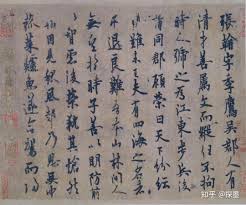 張翰字季鷹吳郡人有
清才善屬文而縱任不拘
時人號之為江東步兵後
謂同郡顧榮曰天下紛紜
禍難未已夫有四海之名者
求退良難吾本山林間人
無望於時子善以明防前
以智慮後榮執其愴然
翰因見秋風起乃思吳中
菰菜鱸魚遂命駕而歸
知乎 @探墨